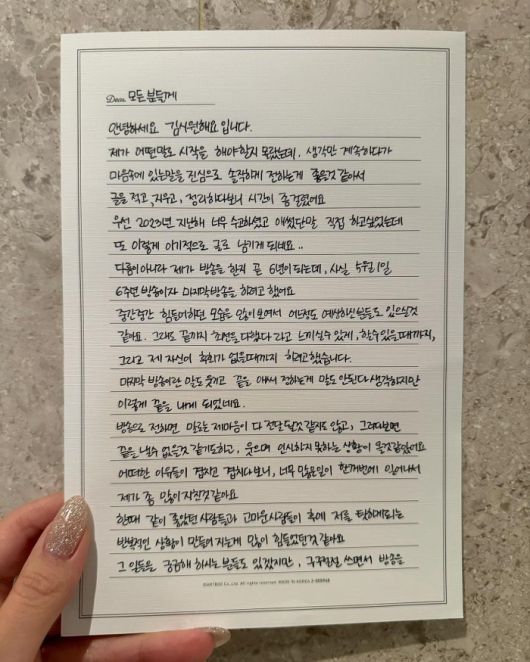 Dear. 모든분들께
안녕하세요 김시원해요입니다.
제가 어떤말로 시작을 해야할지 몰랐는데, 생각만 계속하다가
마음속에 있는말을 진심으로 솔직하게 전하는게 좋을것 같아서
글을 적고, 지우고, 정리하다보니 시간이 좀 걸렸어요
우선 2023년 지난해 너무 수고하셨고 애썼단말 직접 하고싶었는데
또 이렇게 이기적으로 글로 남기게 되네요..
다름이아니라 제가 방송을 한지 곧 6년이 되는데, 사실 5월 1일
6주년 방송이자 마지막방송을 하려고 했어요
중간중간 힘들어하던 모습을 많이 보여서 어느정도 예상하신분들도 있으실것
같아요. 그래도 끝까지 최선을 다했다 라고 느끼실수 있게, 할수있을때까지,
그리고 제 자신이 후회가 없을때까지 하려고 했습니다.
마지막 방송이란 말도 웃기고 끝을 애써 정하는게 말도 안된다 생각하지만
이렇게 끝을 내게 되었네요.
방송으로 전하면 말로는 제마음이 다 전달 될것같지도 않고, 그러다보면
끝을 낼수 없을것 같기도하고, 웃으며 인사하지 못하는 상황이 올것같았어요
어떠한 이유들이 겹치고 겹치다보니, 너무 많은일이 한꺼번에 일어나서
제가 좀 많이 지친것같아요
한때 같이 좋았던 사람들과 고마운사람들이 후에 저를 탓하게되는
반복적인 상황이 만들어 지는게 많이 힘들었던것 같아요
그 일들을 궁금해 하시는 분들도 있겠지만, 구구절절 쓰면서 방송을
All rights reserved. MADE IN KOREA